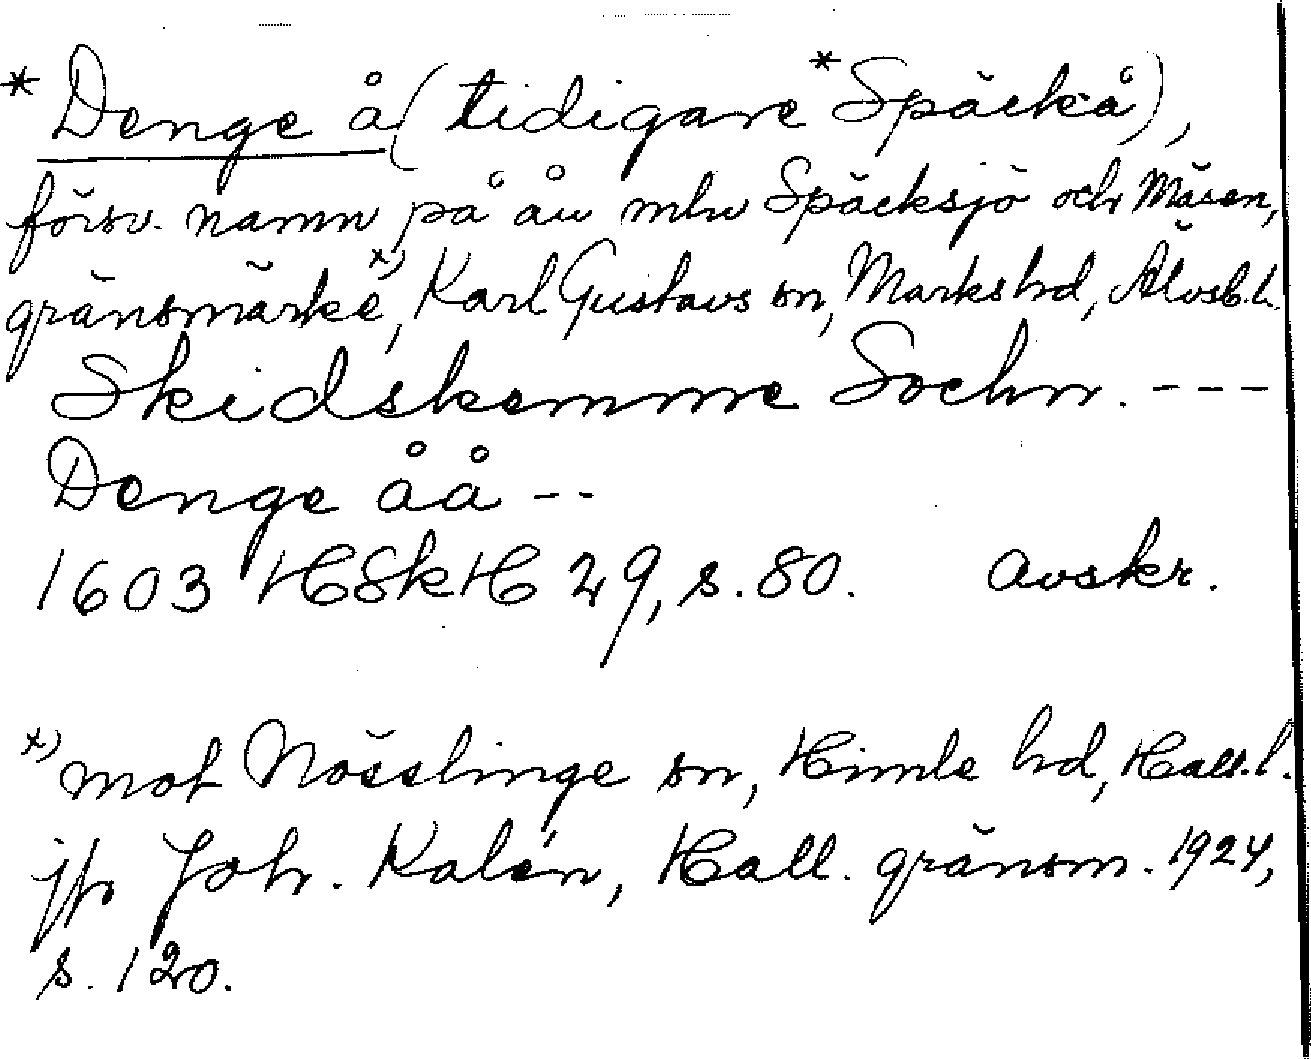 * Denge å (tidigare *Späckå),
försv. namn på ån mlw Späcksjö och Mäsen,
gränsmärke x), Karl Gustavs sn, Marks hd, Älvsb.l.
Skidskemme Sochn. ---
Denge åå --
1603 HSkH 29, s. 80. avskr.
x) mot Nösslinge sn, Himle hd, Hall.l.
jfr Joh. Kalén, Hall. gränsm. 1924,
s. 120.